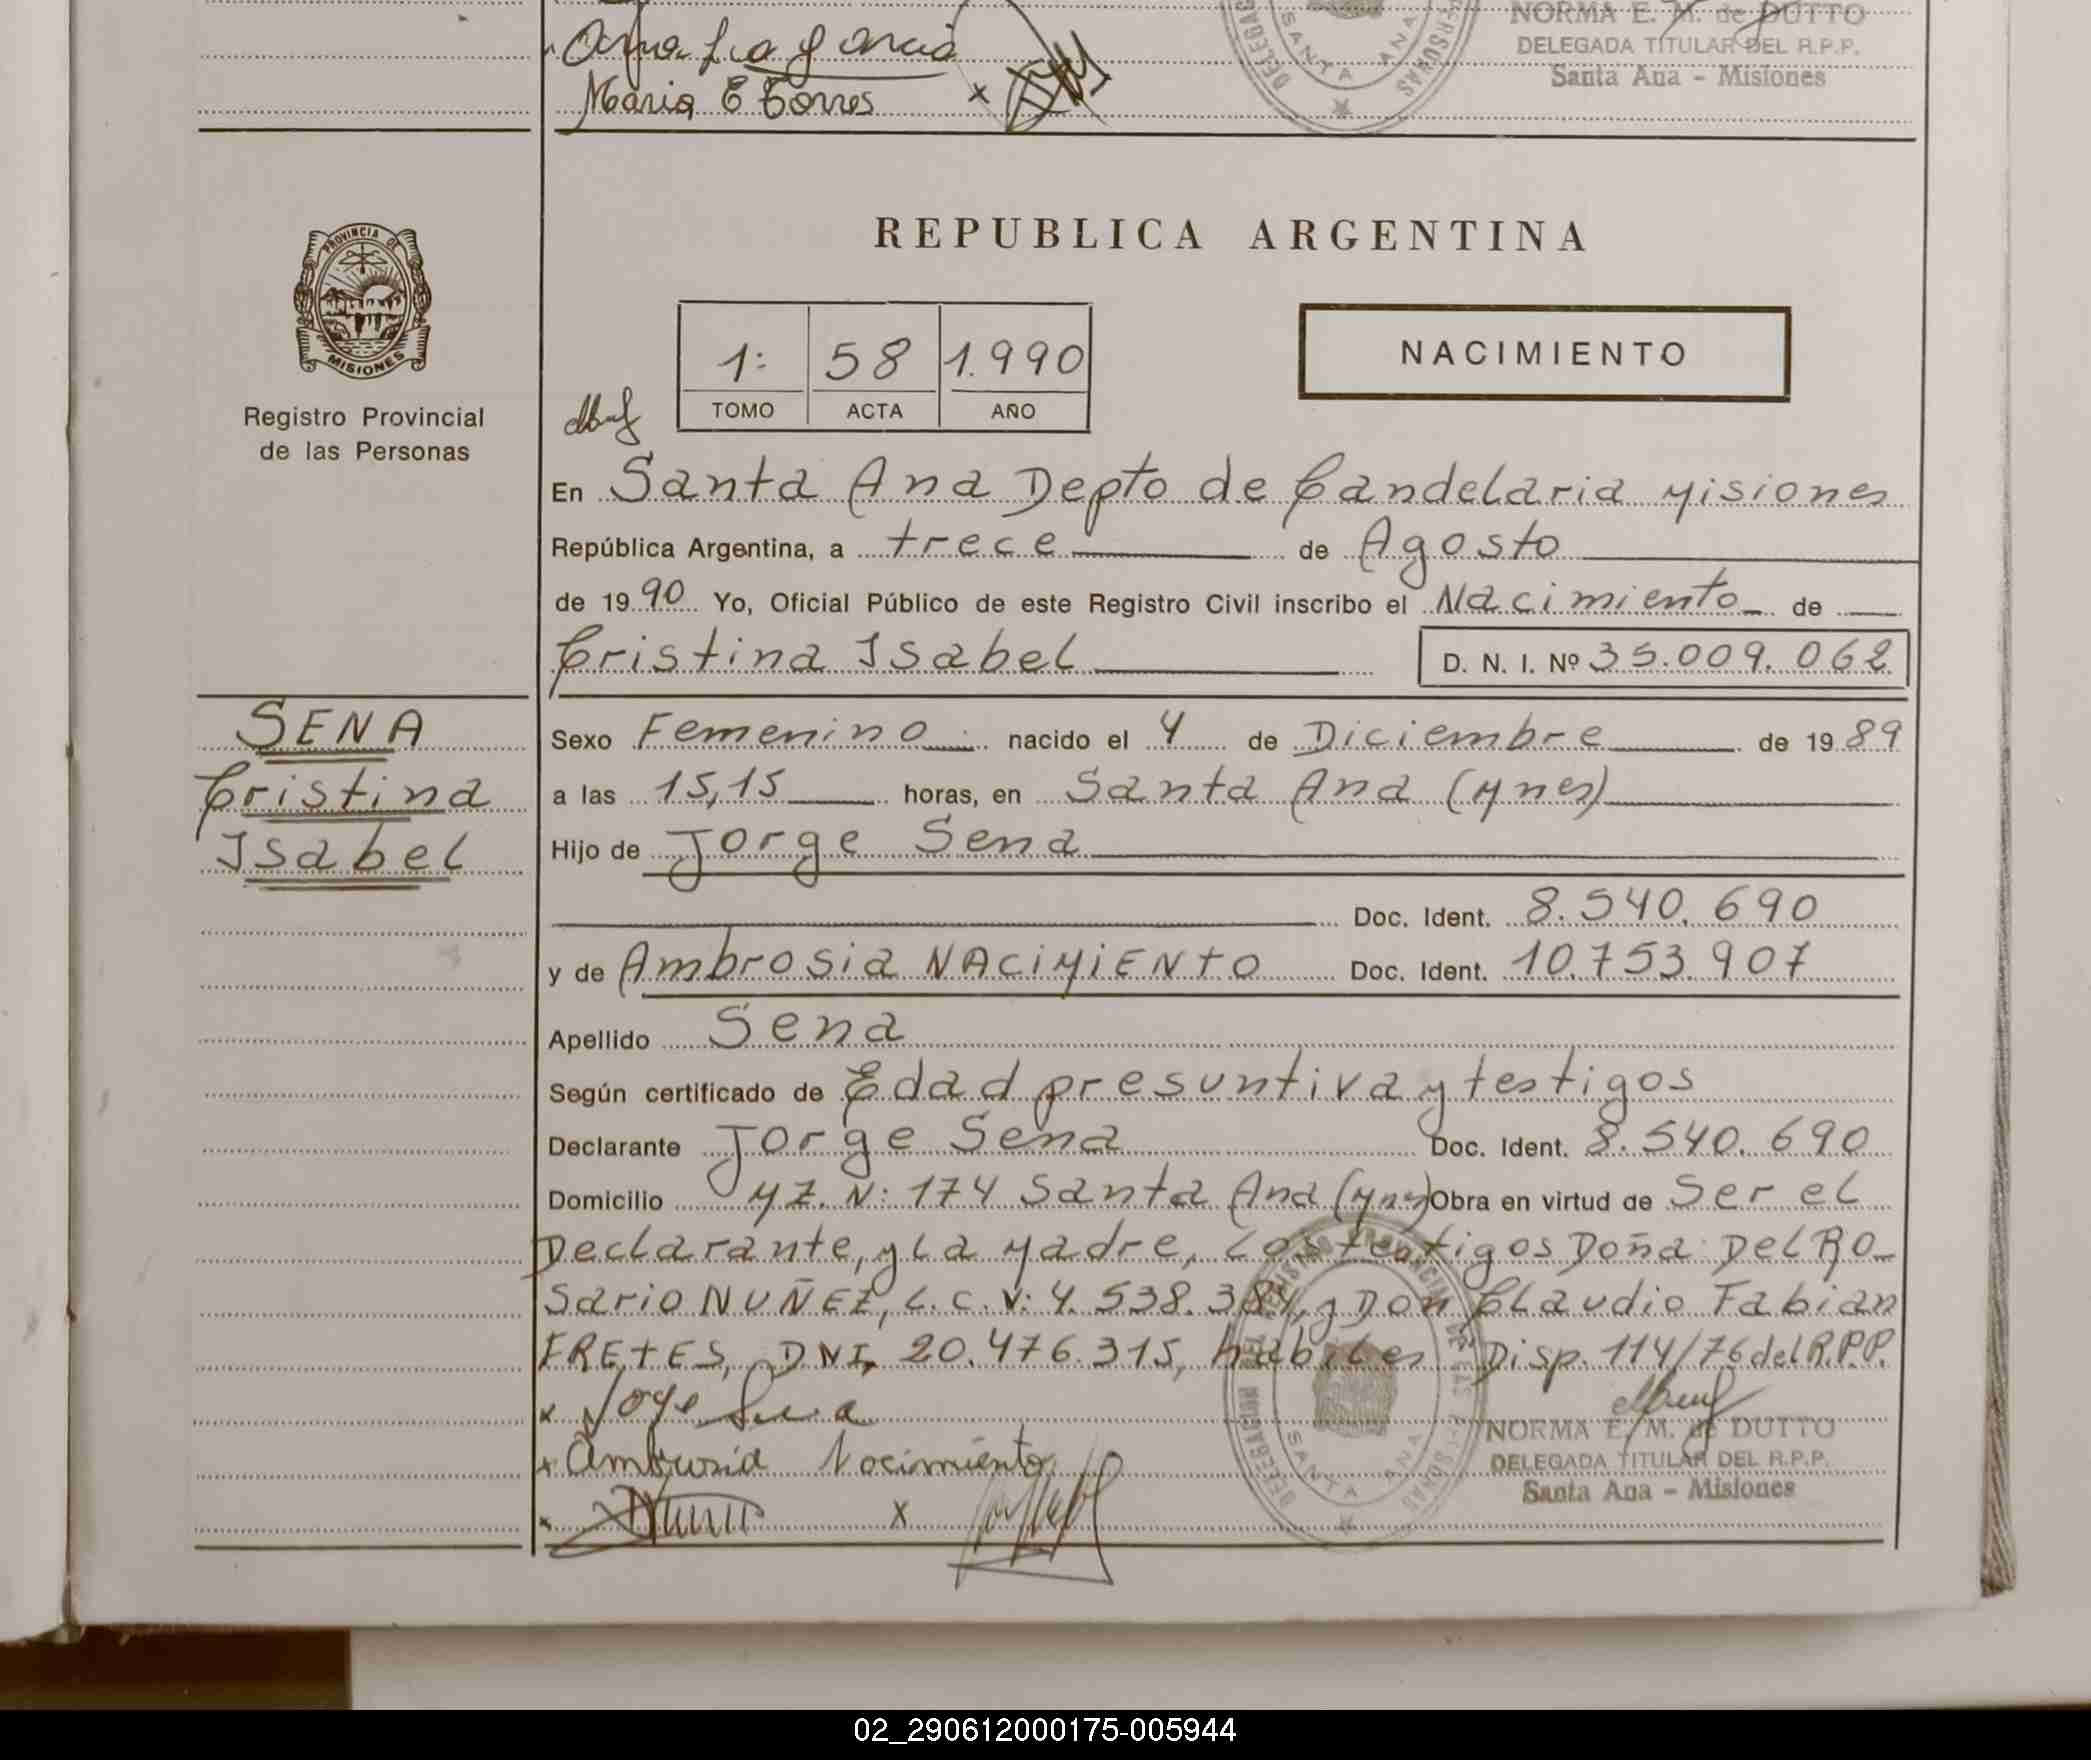 NORMA E. M. de DUTTO
DELEGADA TITULAR DEL R.P.P.
Santa Ana - Misiones
Maria E Torres x
SANTA ANA
REPUBLICA ARGENTINA
PROVINCIA DE MISIONES
Registro Provincial
de las Personas
1: 58 1.990
TOMO ACTA AÑO
NACIMIENTO
En Santa Ana Depto de Candelaria Misiones
República Argentina, a trece de Agosto
de 1990 Yo, Oficial Público de este Registro Civil inscribo el Nacimiento de
Cristina Isabel D. N. I. Nº 35.009.062
SENA
Cristina
Isabel
Sexo Femenino nacido el 4 de Diciembre de 1989
a las 15,15 horas, en Santa Ana (Mnes)
Hijo de Jorge Sena
Doc. Ident. 8.540.690
y de Ambrosia NACIMIENTO Doc. Ident. 10.753.907
Apellido Sena
Según certificado de Edad presuntiva y testigos
Declarante Jorge Sena Doc. Ident. 8.540.690
Domicilio MZ. N: 174 Santa Ana (Mnes) Obra en virtud de Ser el
Declarante, y La Madre, Los testigos Doña Del Ro_
Sario NUÑEZ, L.C.N: 4.538.384, y Don Claudio Fabian
FRETES, DNI, 20.476.315, habiles Disp. 114/76 del R.P.P.
x Jorge Sena
x Ambrosia Nacimiento
x x
SANTA ANA
NORMA E. M. de DUTTO
DELEGADA TITULAR DEL R.P.P.
Santa Ana - Misiones
02_290612000175-005944